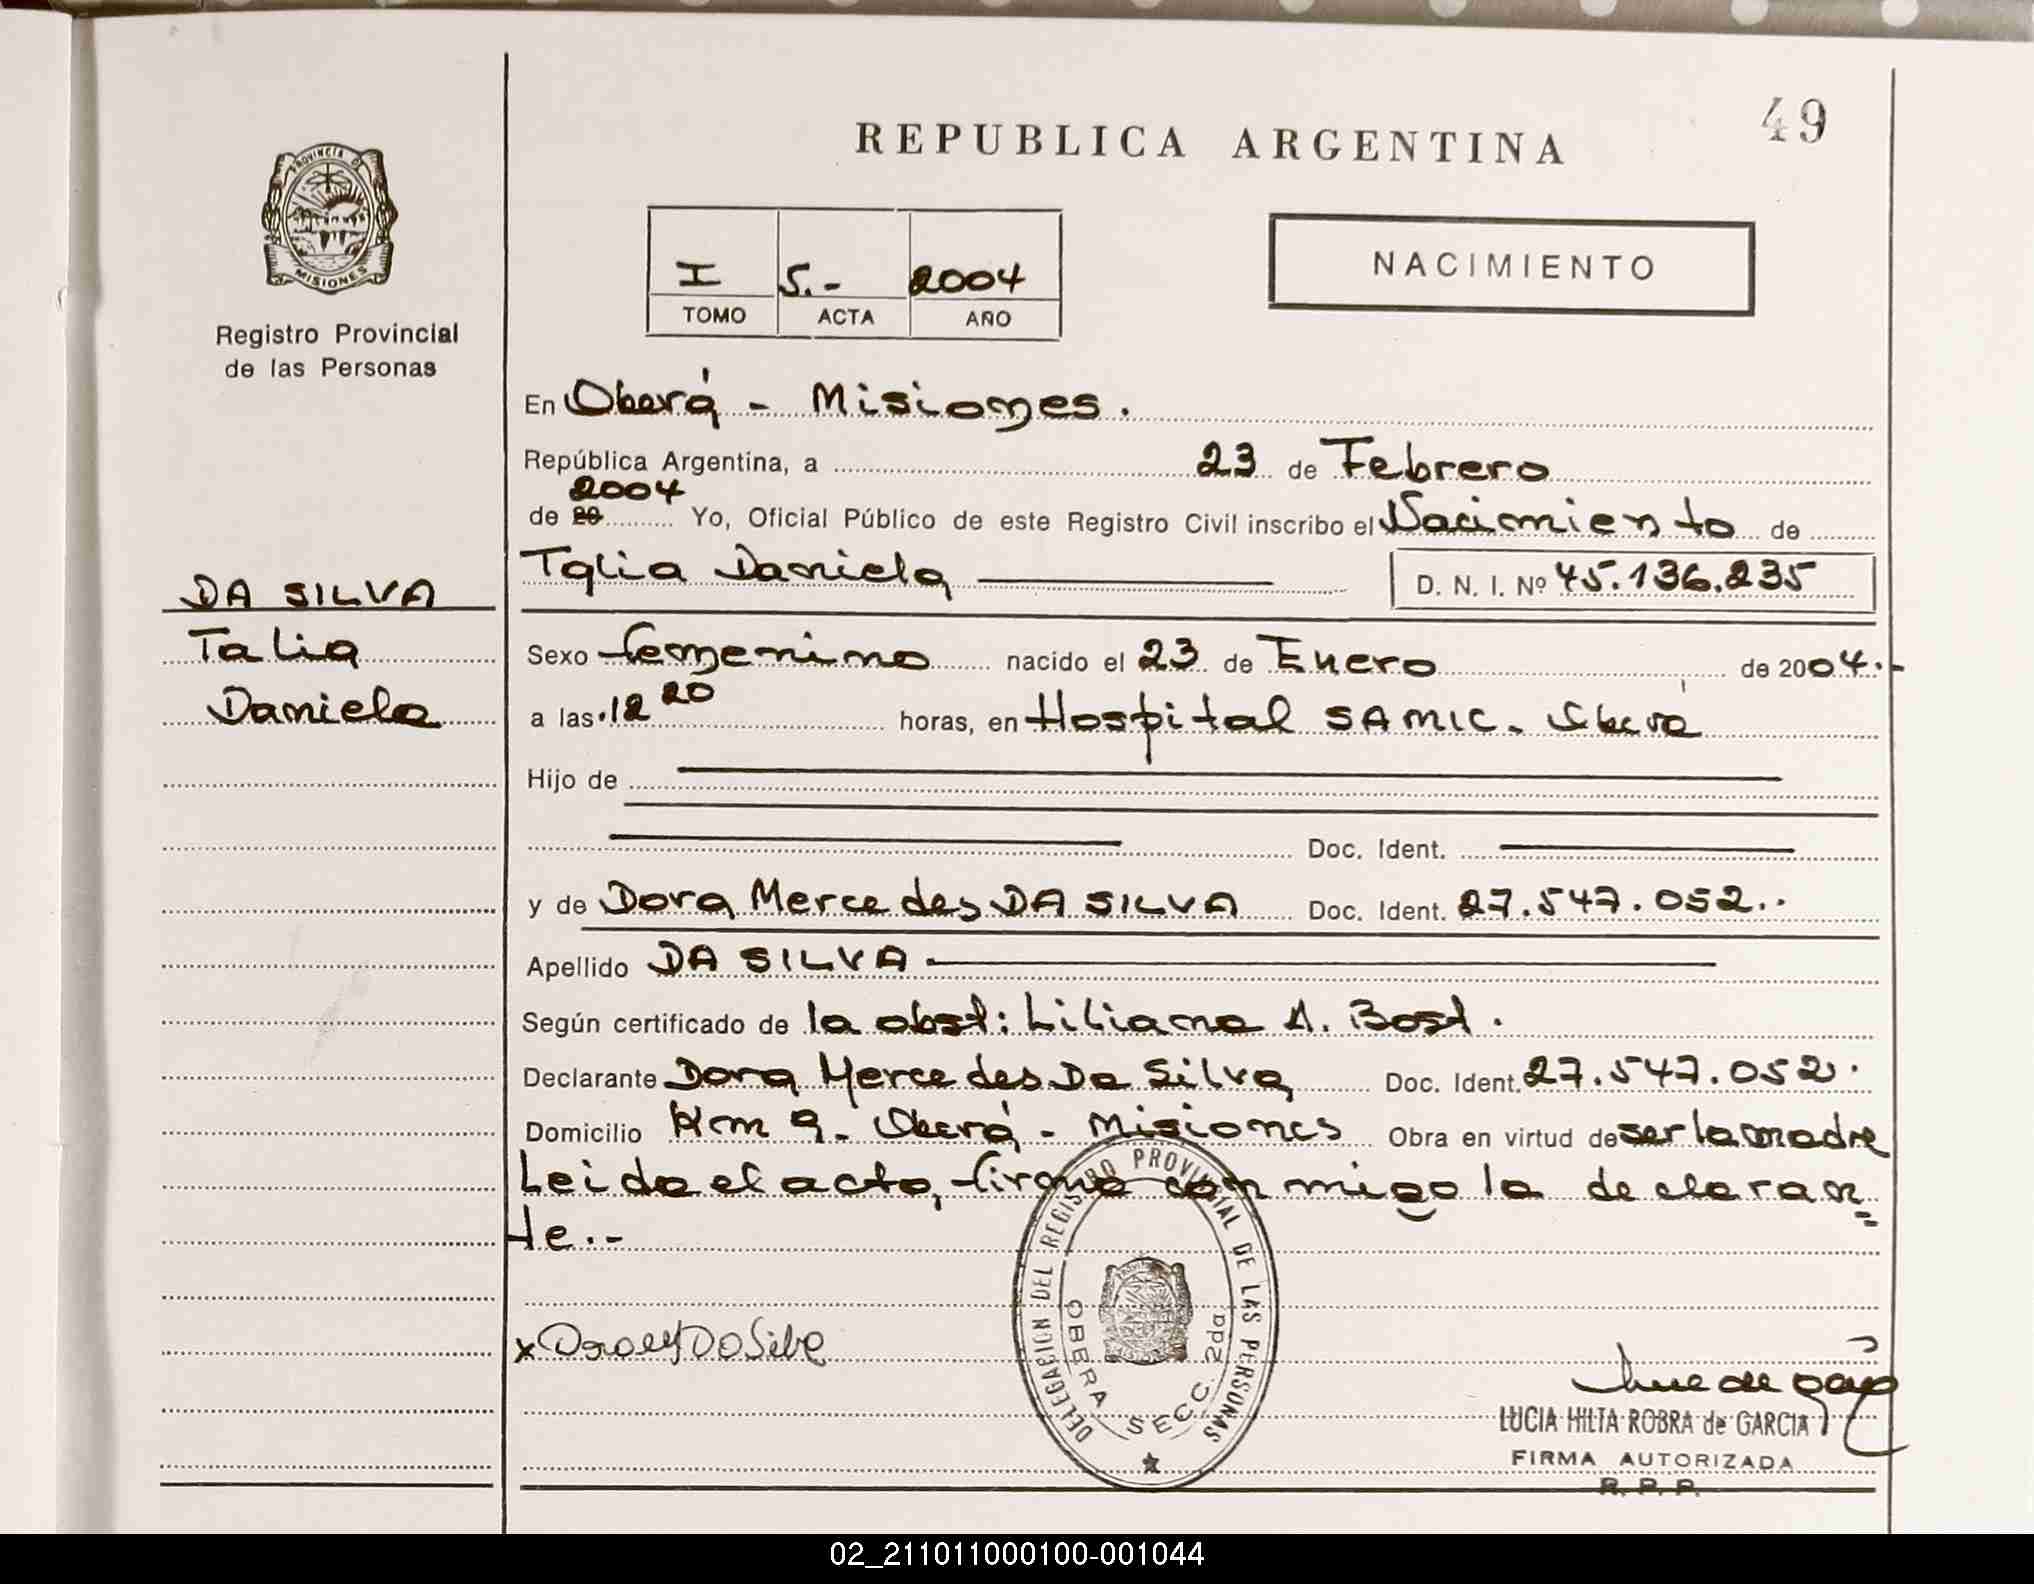 49
REPUBLICA ARGENTINA
PROVINCIA D
MISIONES
Registro Provincial
de las Personas
I 5.- 2004
TOMO ACTA AÑO
NACIMIENTO
En Oberá - Misiones.
República Argentina, a 23 de Febrero
2004
de 20 Yo, Oficial Público de este Registro Civil inscribo el Nacimiento de
Talia Daniela D. N. I. Nº 45.136.235
DA SILVA
Talia
Daniela
Sexo femenino nacido el 23 de Enero de 2004.-
a las 12 20 horas, en Hospital SAMIC. Oberá
Hijo de
Doc. Ident.
y de Dora Mercedes DA SILVA Doc. Ident. 27.547.052..
Apellido DA SILVA
Según certificado de la obst: Liliana A. Bost.
Declarante Dora Mercedes Da Silva Doc. Ident. 27.547.052.
Domicilio Km 9.- Oberá - Misiones Obra en virtud de ser la madre
Leida el acta, firma conmigo la declaran=
te.-
DELEGACION DEL REGISTRO PROVINCIAL DE LAS PERSONAS
OBERA SECC. 2da
x Da Silva
LUCIA HILTA ROBRA de GARCIA
FIRMA AUTORIZADA
R. P. P.
02_211011000100-001044